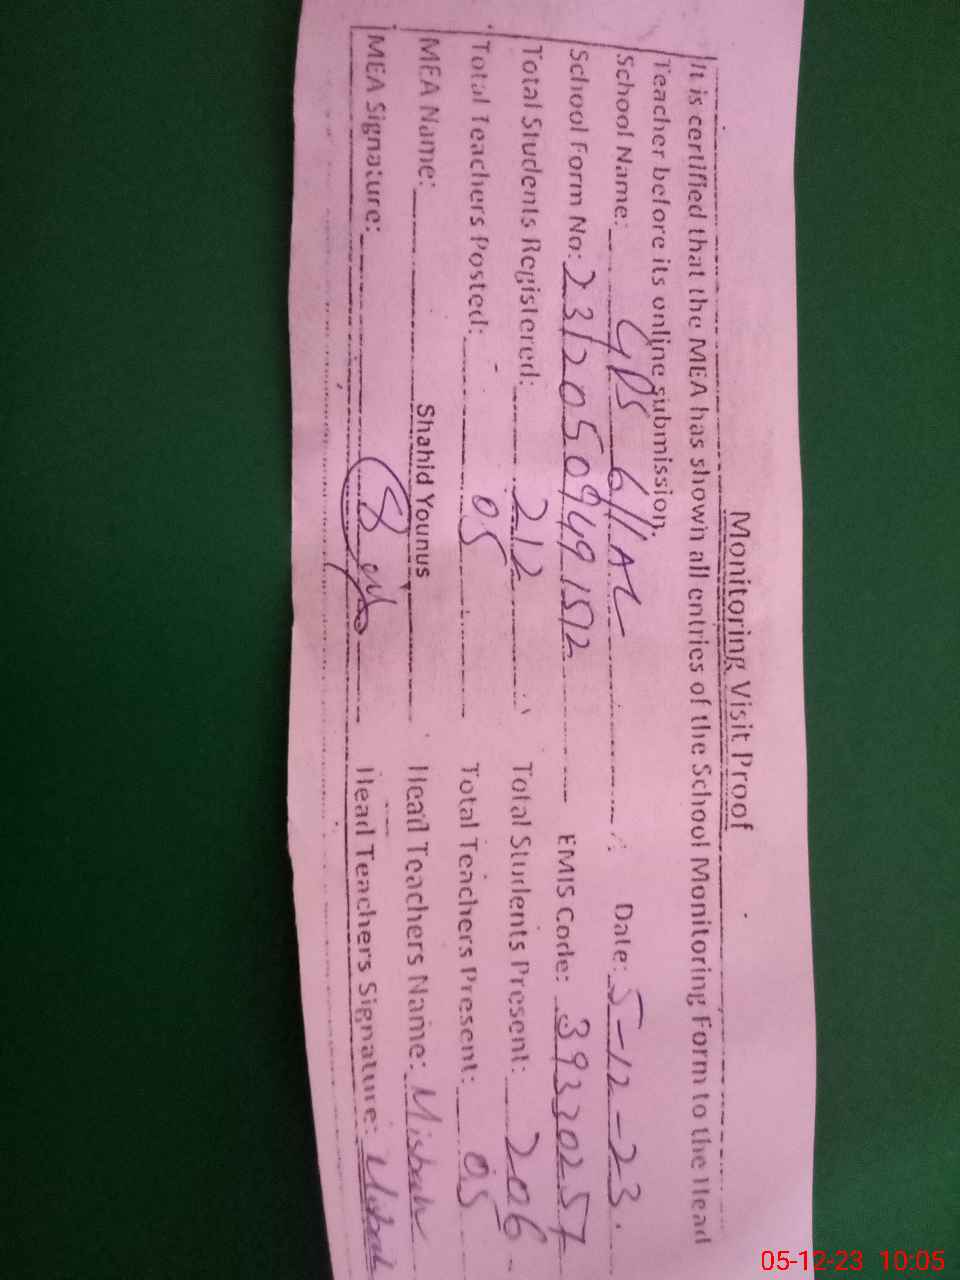 Monitoring Visit Proof
It is certified that the MEA has shown all entries of the School Monitoring Form to the Head
Teacher before its online submission.
School Name: GPS 6/1 AL Date: 5-12-23.
School Form No: 23120509491512 EMIS Code: 39320257
Total Students Registered: 212 Total Students Present: 206
Total Teachers Posted: 05 Total Teachers Present: 05
MEA Name: Shahid Younus Head Teachers Name: Misbah
MEA Signature: Head Teachers Signature: Misbah
05-12-23 10:05